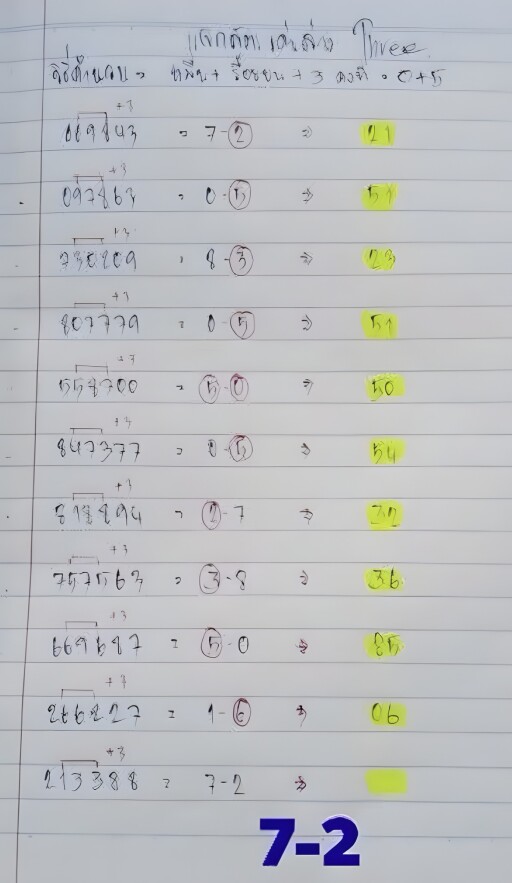 แจกสูตร เด่นล่าง Three
วิธีคำนวณ = หมื่น + ร้อย + 3 คงที่ = 0+5
+3
069843 = 7-2 ⇒ 21
+3
097863 = 0-5 ⇒ 51
+3
730209 = 8-3 ⇒ 23
+3
807779 = 0-5 ⇒ 51
+7
558700 = 5-0 ⇒ 50
+3
847377 = 0-5 ⇒ 54
+3
818894 = 2-7 ⇒ 32
+3
757563 = 3-8 ⇒ 36
+3
669687 = 5-0 ⇒ 85
+7
266227 = 1-6 ⇒ 06
+3
213388 = 7-2 ⇒
7-2